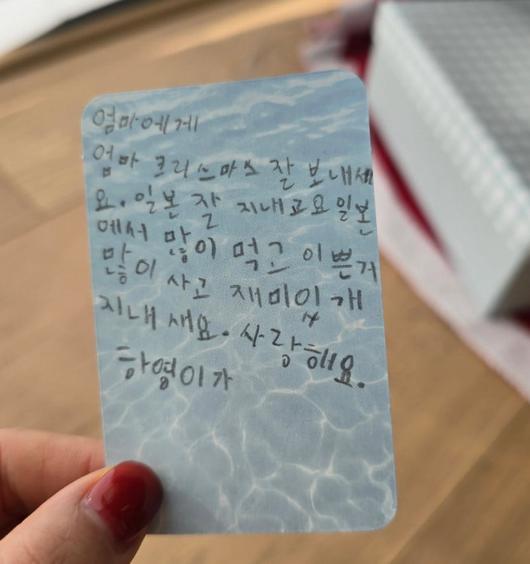 엄마에게
엄마 크리스마스 잘 보내세
요. 일본 잘 지내고요 일본
에서 많이 먹고 이쁜거
많이 사고 재미이 개
지내 새요. 사랑해요.
하영이가